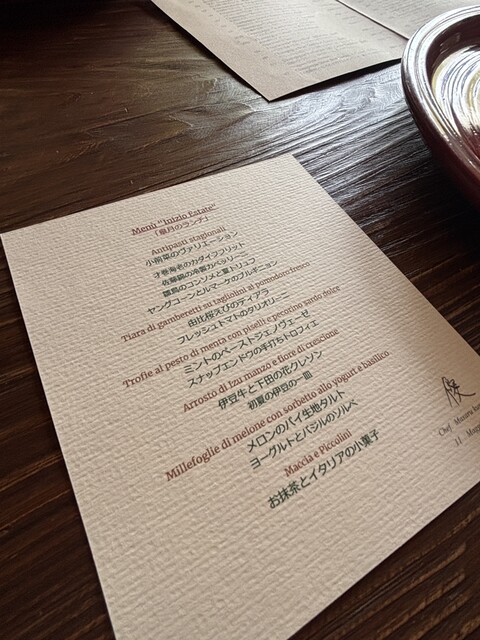 Menù "Inizio Estate"
「皐月のランチ」
Antipasti stagionali
小前菜のヴァリエーション
才巻海老のカダイフフリット
佐藤錦の冷製カペッリーニ
雛鳥のコンソメと夏トリュフ
ヤングコーンとルマーケのブルギニョン
Tiara di gamberetti su tagliolini al pomodoro fresco
由比桜えびのティアラ
フレッシュトマトのタリオリーニ
Trofie al pesto di menta con piselli e pecorino santo dolce
ミントのペーストジェノヴェーゼ
スナップエンドウの手打ちトロフィエ
Arrosto di Izu manzo e fiore di crescione
伊豆牛と下田の花クレソン
初夏の伊豆の一皿
Millefoglie di melone con sorbetto allo yogurt e basilico
メロンのパイ生地タルト
ヨーグルトとバジルのソルベ
Maccia e Piccolini
お抹茶とイタリアの小菓子
Chef Masaru
11. Magg